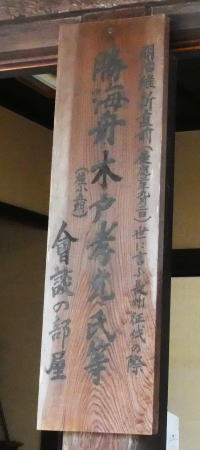 明治維新直前(慶應二年九月二日)世に言ふ長州征伐の際
勝海舟木戸孝允氏等
(桂小五郎)
會談の部屋